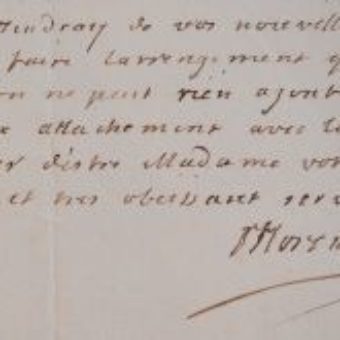 de vos nouvell
faire larrengiment q
ne peut rien ajout
attachement avec
distre Madame vo
et tres obeissant serv